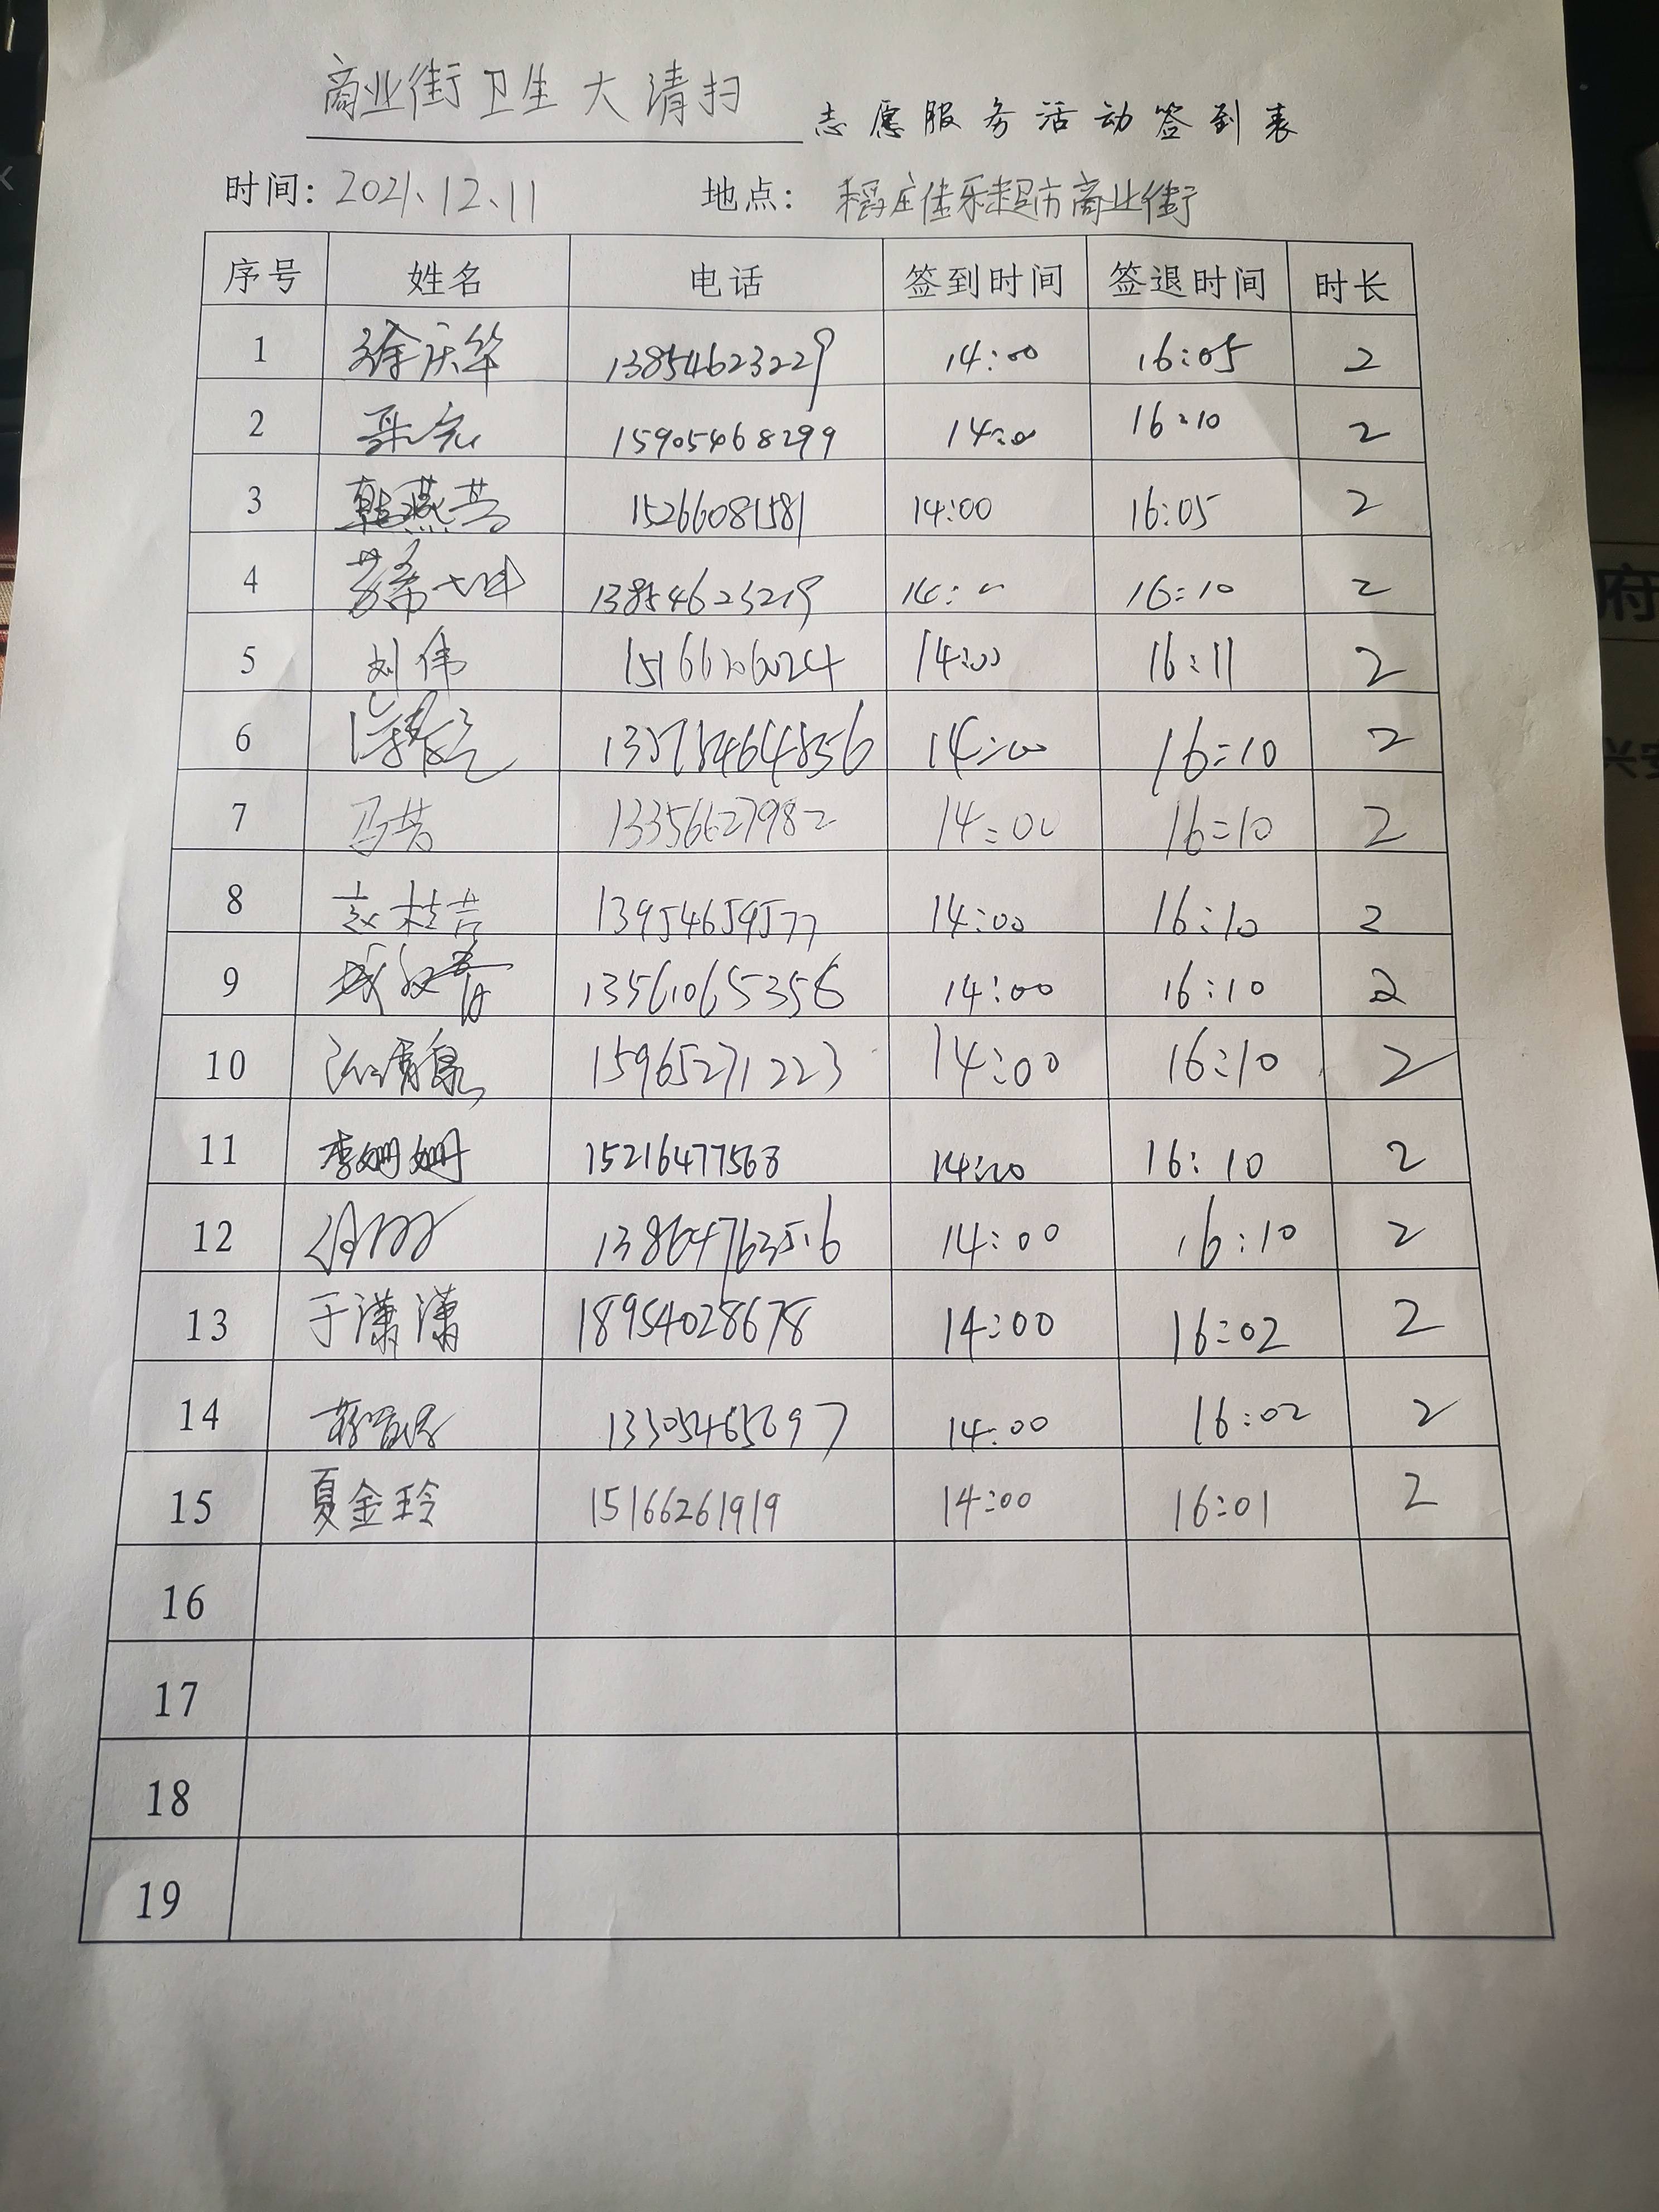 商业街卫生大清扫 志愿服务活动签到表
时间: 2021.12.11 地点: 稻庄佳乐超市商业街
序号 姓名 电话 签到时间 签退时间 时长
1 徐庆华 13854623229 14:00 16:05 2
2 15905468299 14:00 16:10 2
3 韩燕芳 15266081581 14:00 16:05 2
4 13854623219 14: 16:10 2
5 刘伟 14:00 16:11 2
6 14:00 16:10 2
7 马芸 13356627982 14:00 16:10 2
8 赵桂吉 13954659577 14:00 16:10 2
9 13561065358 14:00 16:10 2
10 15965271223 14:00 16:10 2
11 李姗姗 15216477568 14:00 16:10 2
12 13864763516 14:00 16:10 2
13 于潇潇 18954028678 14:00 16:02 2
14 14:00 16:02 2
15 夏金玲 15166261919 14:00 16:01 2
16
17
18
19